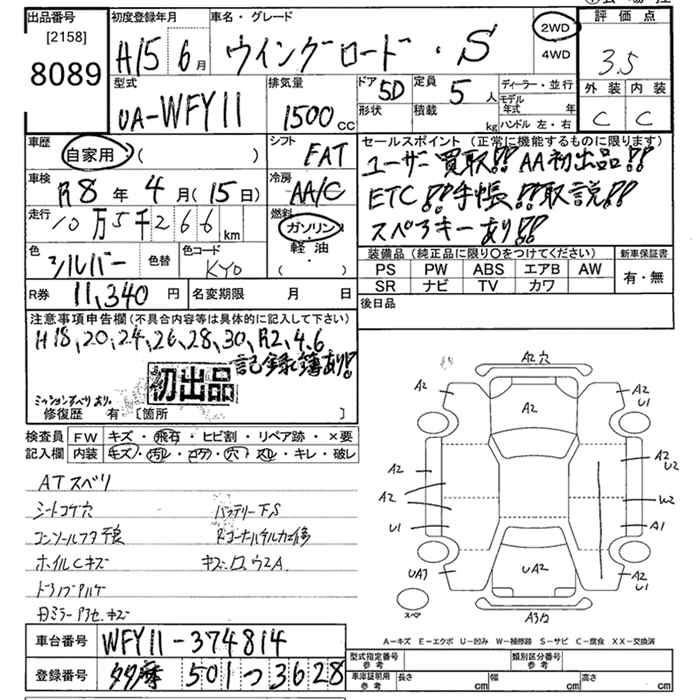 出品番号 初度登録年月 車名・グレード 評価点
[2158]
8089
H15 6月 ウイングロード・S 2WD 4WD 3.5
外装 内装
C C
型式 排気量 ドア 5D 定員 5人 ディーラー・並行
UA-WFY11 1500cc 形状 積載 kg モデル年式 年
ハンドル 左・右
車歴 シフト セールスポイント (正常に機能するものに限ります)
自家用 ( ) FAT ユーザー買取!! AA初出品!!
車検 冷房 ETC!!手帳!!取説!!
R8年4月(15日) AA/C スペアキーあり!!
走行 燃料
10万5千266km ガソリン・軽油
色 色替 色コード 装備品 (純正品に限り○をつけてください) 新車保証書
シルバー KY0 PS PW ABS エアB AW 有・無
SR ナビ TV カワ
R券 11,340円 名変期限 月 日 後日品
注意事項申告欄 (不具合内容等は具体的に記入して下さい)
H18、20、24、26、28、30、R2、4、6
記録簿あり!
初出品
ミッションすべりあり。
修復歴 有 [箇所 ]
検査員 FW キズ・飛石・ヒビ割・リペア跡・×要
記入欄 内装 キズ・汚レ・コゲ・穴・スレ・キレ・破レ
ATスベリ
シートコゲ穴 バッテリーFS
コンソールフタ不良
ホイルCキズ
A2穴
A2 A2 A2
U1
A2 A2
U2
A2 W2
U1 A1
UA3 UA2 A2
U1
スペア A3カ
A-キズ E-エクボ U-凹み W-補修跡 S-サビ C-腐食 XX-交換済
車台番号 WFY11-374814
登録番号 多摩 501 つ 3628
型式指定番号 参考 類別区分番号 参考
車庫証明用 参考 長さ cm 幅 cm 高さ cm